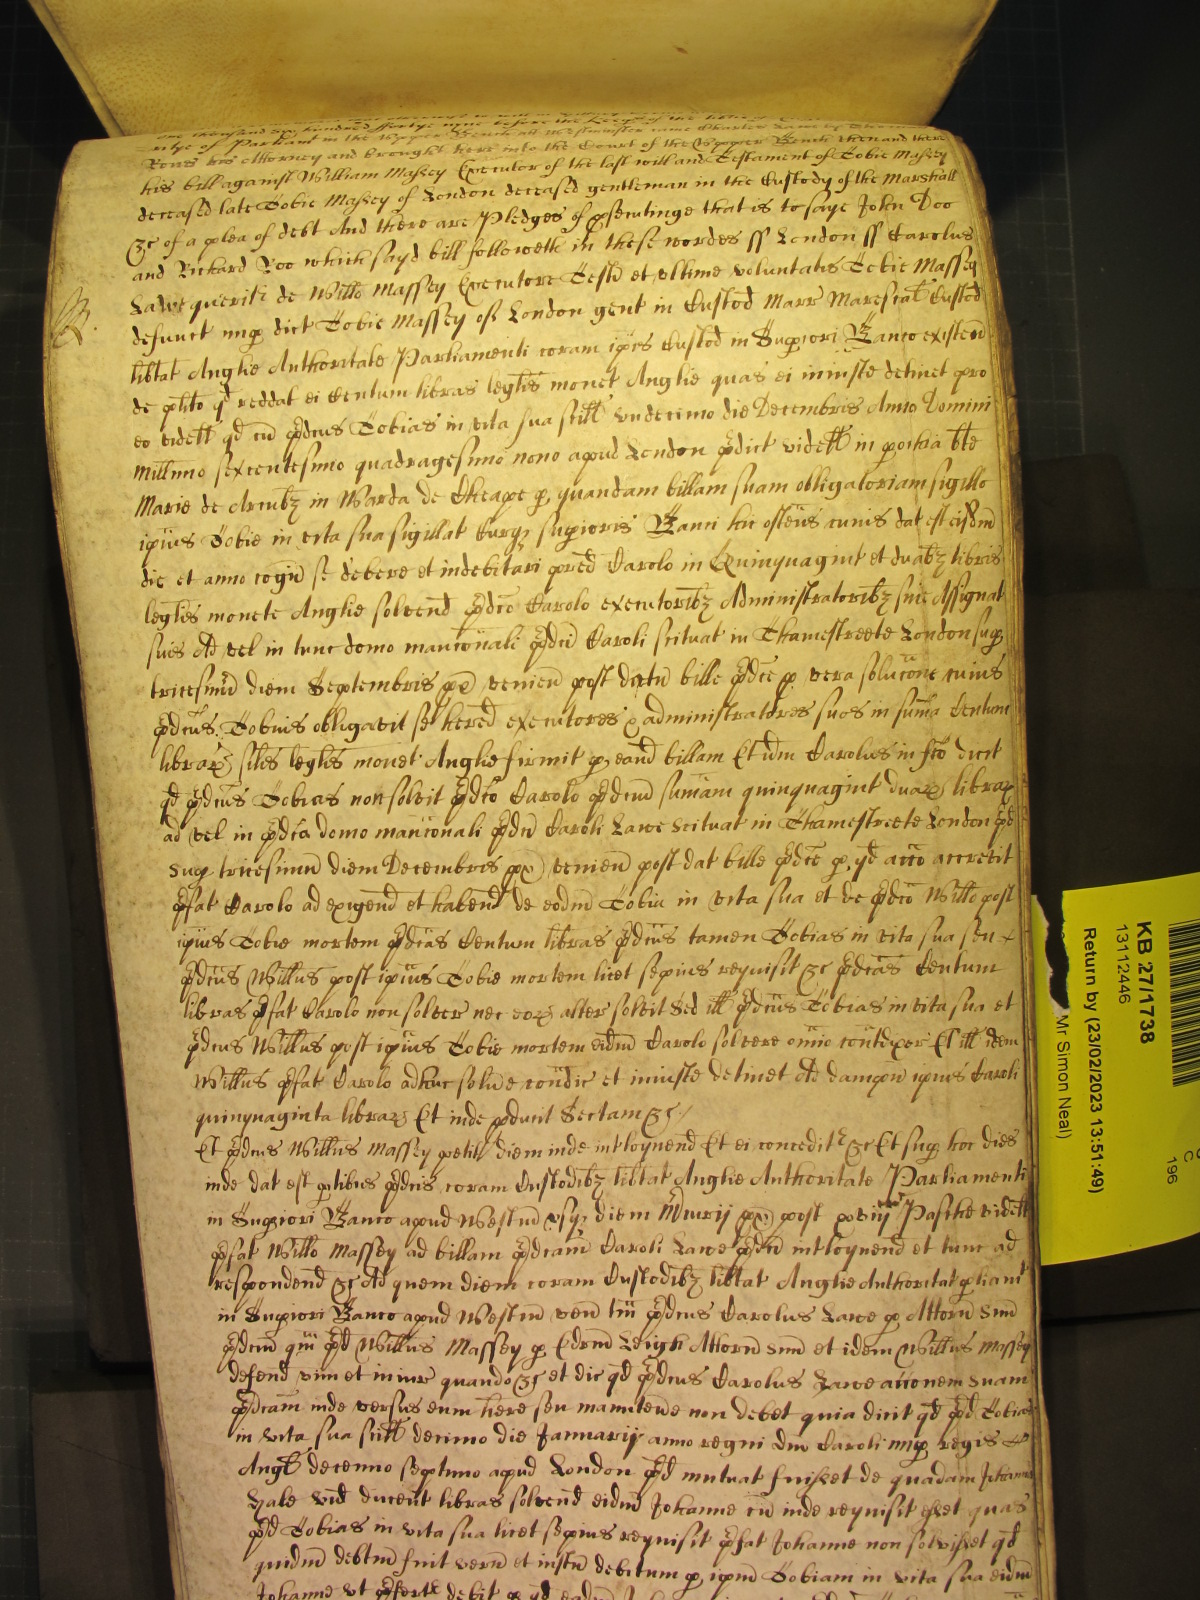 one thousand six hundred fforty nine before the Keeps of the
of Parliamt in the Upper Bench att Westminster came Charles Lawe by
his Attorney and brought here into the Court of the Upper Bench then and there
his bill against William Massey Executor of the last will and Testament of Tobie Massey
deceased late Tobie Massey of London deceased gentleman in the Custody of the Marshall
&c of a plea of debt And there are Pledges of psecutinge that is to saye John Doo
and Richard Roo which sayd bill followeth in these wordes ss London ss Carolus
Lawe querit de Willo Massey Executore Testi et ultime voluntatis Tobie Massey
defunct nup dict Tobie Massey of London gent in Custod Marr Marescal Custod
libtat Anglie Authoritate Parliamenti coram ipis Custod in Supiori Banco existen
de plito qd reddat ei Centum libras leglis monet Anglie quas ei iniuste detinet pro
eo videlt qd cu pdcus Tobias in vita sua scilt undecimo die Decembris Anno Domini
Millimo sexcentesimo quadragesimo nono apud London pdict videlt in pochia bte
Marie de Arcubz in Warda de Cheape p quandam billam suam obligatoriam sigillo
ipius Tobie in vita sua sigillat Curqz supioris Banci hic ostens cuius dat est eisdm
die et anno cogn se debere et indebitari pred Carolo in Quinquagint et duabz libris
leglis monete Anglie solvend pdco Carolo executoribz Administratoribz sive Assignat
suis Ad vel in tunc domo mancionali pdcti Caroli scituat in Thamestreete London sup
tricesimu diem Septembris px venien post datu bille pdce p vera solucone cuius
pdcus Tobias obligavit se hered executores & administratores suos in suma Centum
librar siles leglis monet Anglie firmit p eand billam Et idm Carolus in fco dicit
qd pdcus Tobias non solvit pdco Carolo pdcam sumam quinquagint duar librar
ad vel in pdca domo mancionali pdci Caroli Lawe scituat in Thamestreete London pd
sup tricesimu diem Decembris px venien post dat bille pdce p qd accio accrevit
pfat Carolo ad exigend et habend de eodm Tobia in vita sua et de pdco Willo post
ipius Tobie mortem pdcas Centum libras pdcus tamen Tobias in vita sua seu
pdcus Willus post ipius Tobie mortem licet sepius requisit &c pdcas Centum
libras pfat Carolo non solver nec eor alter solvit Sed ill pdcus Tobias in vita sua et
pdcus Willus post ipius Tobie mortem eidm Carolo solvere omio contdixer Et ill idem
Willus pfat Carolo adhuc solve condic et iniuste detinet Ad dampn ipius Caroli
quinquaginta librar Et inde pducit Sectam &c
Et pdcus Willus Massey petit diem inde intloquend Et ei conceditr &c Et sup hoc dies
inde dat est ptibus pdcis coram Custodibz libtat Anglie Authoritate Parliamenti
in Supiori Banco apud Westm usqz diem px post Pasche videlt
pfat Willo Massey ad billam pdcam Caroli Lawe pdci intloquend et tunc ad
respondend &c Ad quem diem coram Custodibz libtat Anglie Authoritat pliamt
in Supiori Banco apud Westm ven tm pdcus Carolus Lawe p Attorn suu
pdcum qm pd Willus Massey p Edrm Leigh Attorn suu et idem Willus Massey
defend vim et iniur quando &c et dic qd pdcus Carolus Lawe accionem suam
pdcam inde versus eum here seu manutene non debet quia dicit qd pd Tobias
in vita sua scilt decimo die Januarij anno regni dni Caroli nup regis
Angl decimo septimo apud London pd mutuat fuisset de quadam Johanne
Hale vid ducent libras solvend eidm Johanne cu inde requisit esset quas
pd Tobias in vita sua licet sepius requisit pfat Johanne non solvisset qd
quidm debtm fuit veru et iustu debitum p ipm Tobiam in vita sua eidm
Johanne ut pfert debit p qd eadm

KB 27/1738
13112446
Return by (23/02/2023 13:51:49)
Mr Simon Neal)
196